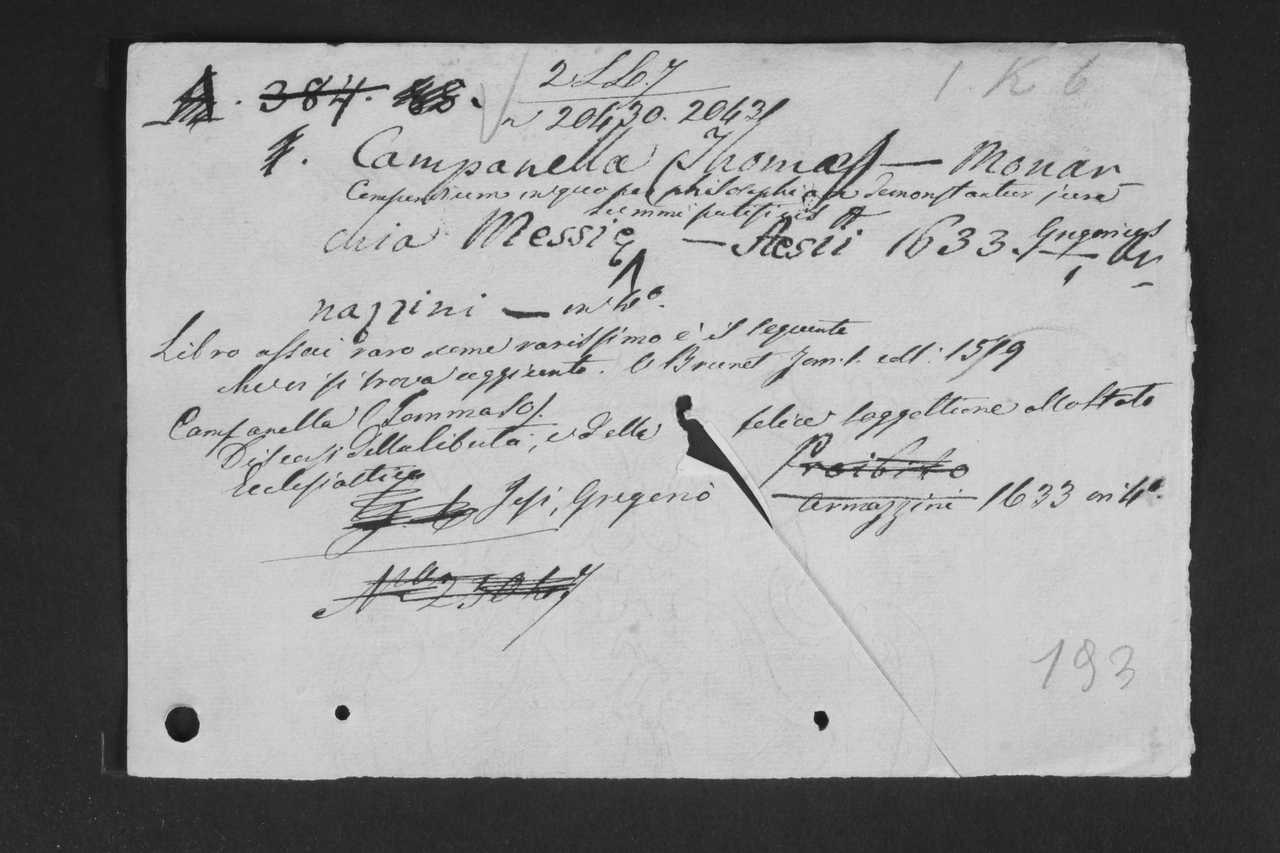 384. 88. 1. K. 6
20430. 20431
1. Campanella Thomas — Monar
Compendium in quo per philosophiam demonstantur jura
summi
chia Messię — Aesii 1633. Gregorius
nazzini — in 4º.
Libro assai raro come rarissimo è il seguente
che vi si trova aggiunto. V Brunet Tom. 1. edt. 1519
Campanella (Tommaso).
Discorsi della libertà, e della felice soggettione allo Stato
Ecclesiastico Proibito
Jesi, Gregorio Arnazzini 1633 in 4º.
193